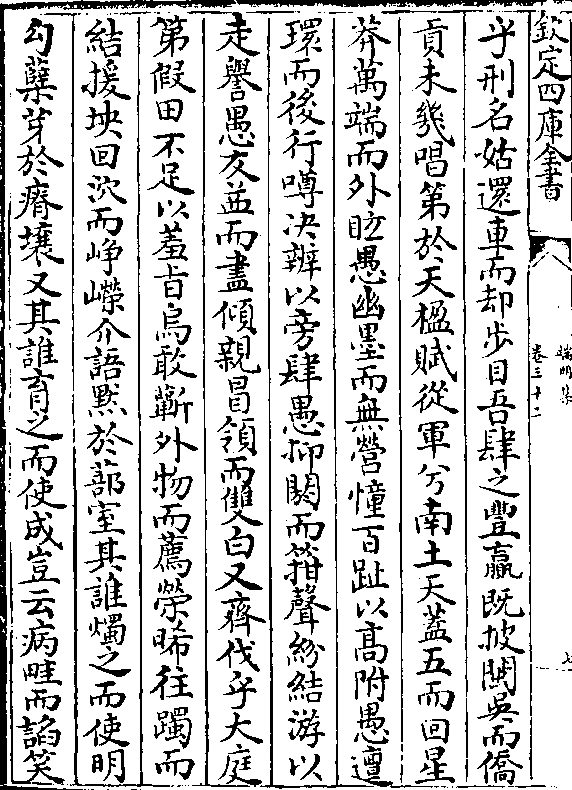 欽定四庫全書
端明集
卷三十二
七
乎刑名姑還車而却步目吾肆之豐贏既披閩吳而僑
貢未幾唱第於天楹賦從軍兮南土天蓋五而回星
莽萬端而外眩愚幽墨而無營憧百趾以高附愚邅
環而後行噂決辨以旁肆愚抑闋而箝聲紛結游以
走譽愚友並而盡傾親冒領而雙白又齊伐乎大庭
第假田不足以羞旨烏敢蘄外物而薦榮晞往躅而
結援坱回泬而崢嶸介語黙於蔀室其誰燭之而使明
勾蘖芽於瘠壤又其誰育之而使成豈云病畦而諂笑